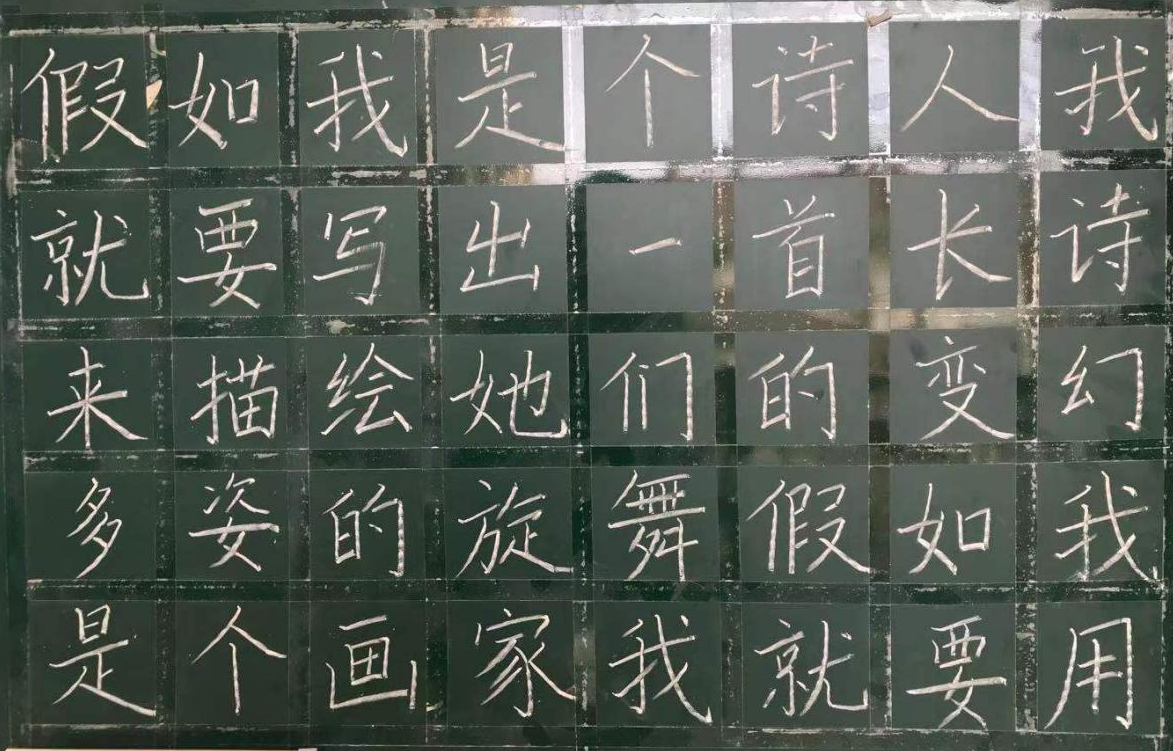 假如我是个诗人我
就要写出一首长诗
来描绘她们的变幻
多姿的旋舞假如我
是个画家我就要用